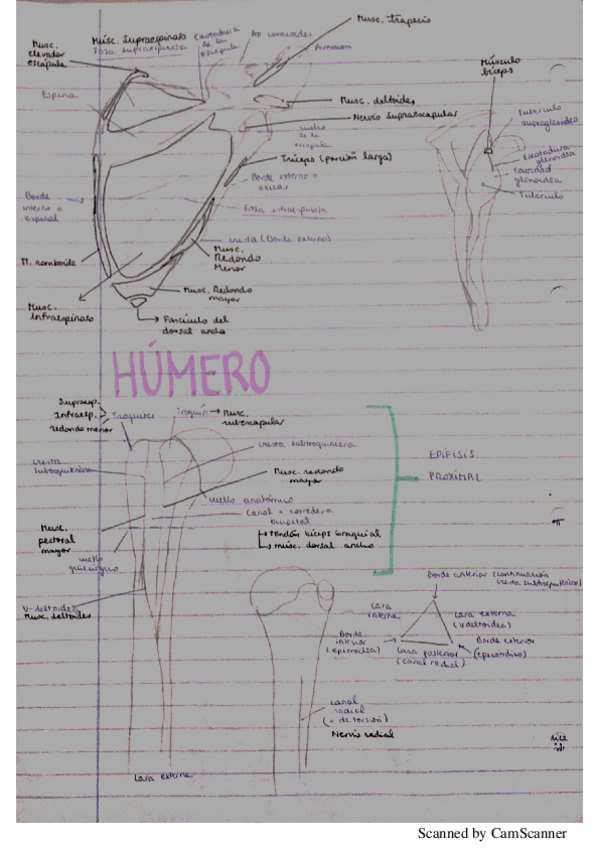 Musc. trapecio
Musc. Supraespinoso
Fosa supraespinosa
Escotadura
de la
escápula
Ap coracoides
Acromion
Musc.
elevador
escápula
Espina
Musc. deltoides
Nervio Supraescapular
cuello
de la
escápula
Tríceps (porción larga)
Borde externo o
axilar
Fosa infraespinosa
cresta (Borde externo)
Musc.
Redondo
Menor
Borde
interno o
espinal
M. romboide
Musc.
infraespinoso
Musc. Redondo
mayor
Fascículo del
dorsal ancho
Músculo
bíceps
Tubérculo
supraglenoideo
Escotadura
glenoidea
cavidad
glenoidea
Tubérculo
HÚMERO
Supraesp.
Infraesp.
redondo menor
Troquiter
Troquín → Musc.
subescapular
cresta subtroquiniana
cresta
Musc. redondo
mayor
cuello anatómico
canal o corredera
bicipital
tendón bíceps braquial
musc. dorsal ancho
Musc.
pectoral
mayor
cuello
quirúrgico
V-deltoidea
Musc. deltoides
EPÍFISIS
PROXIMAL
Borde anterior (continuación
cresta subtroquiteriana)
cara
interna
cara externa
(V deltoidea)
Borde
inferior
Borde exterior
(epicondíleo)
cara posterior
(canal radial)
canal
radial
(o de torsión)
Nervio radial
cara externa
Scanned by CamScanner